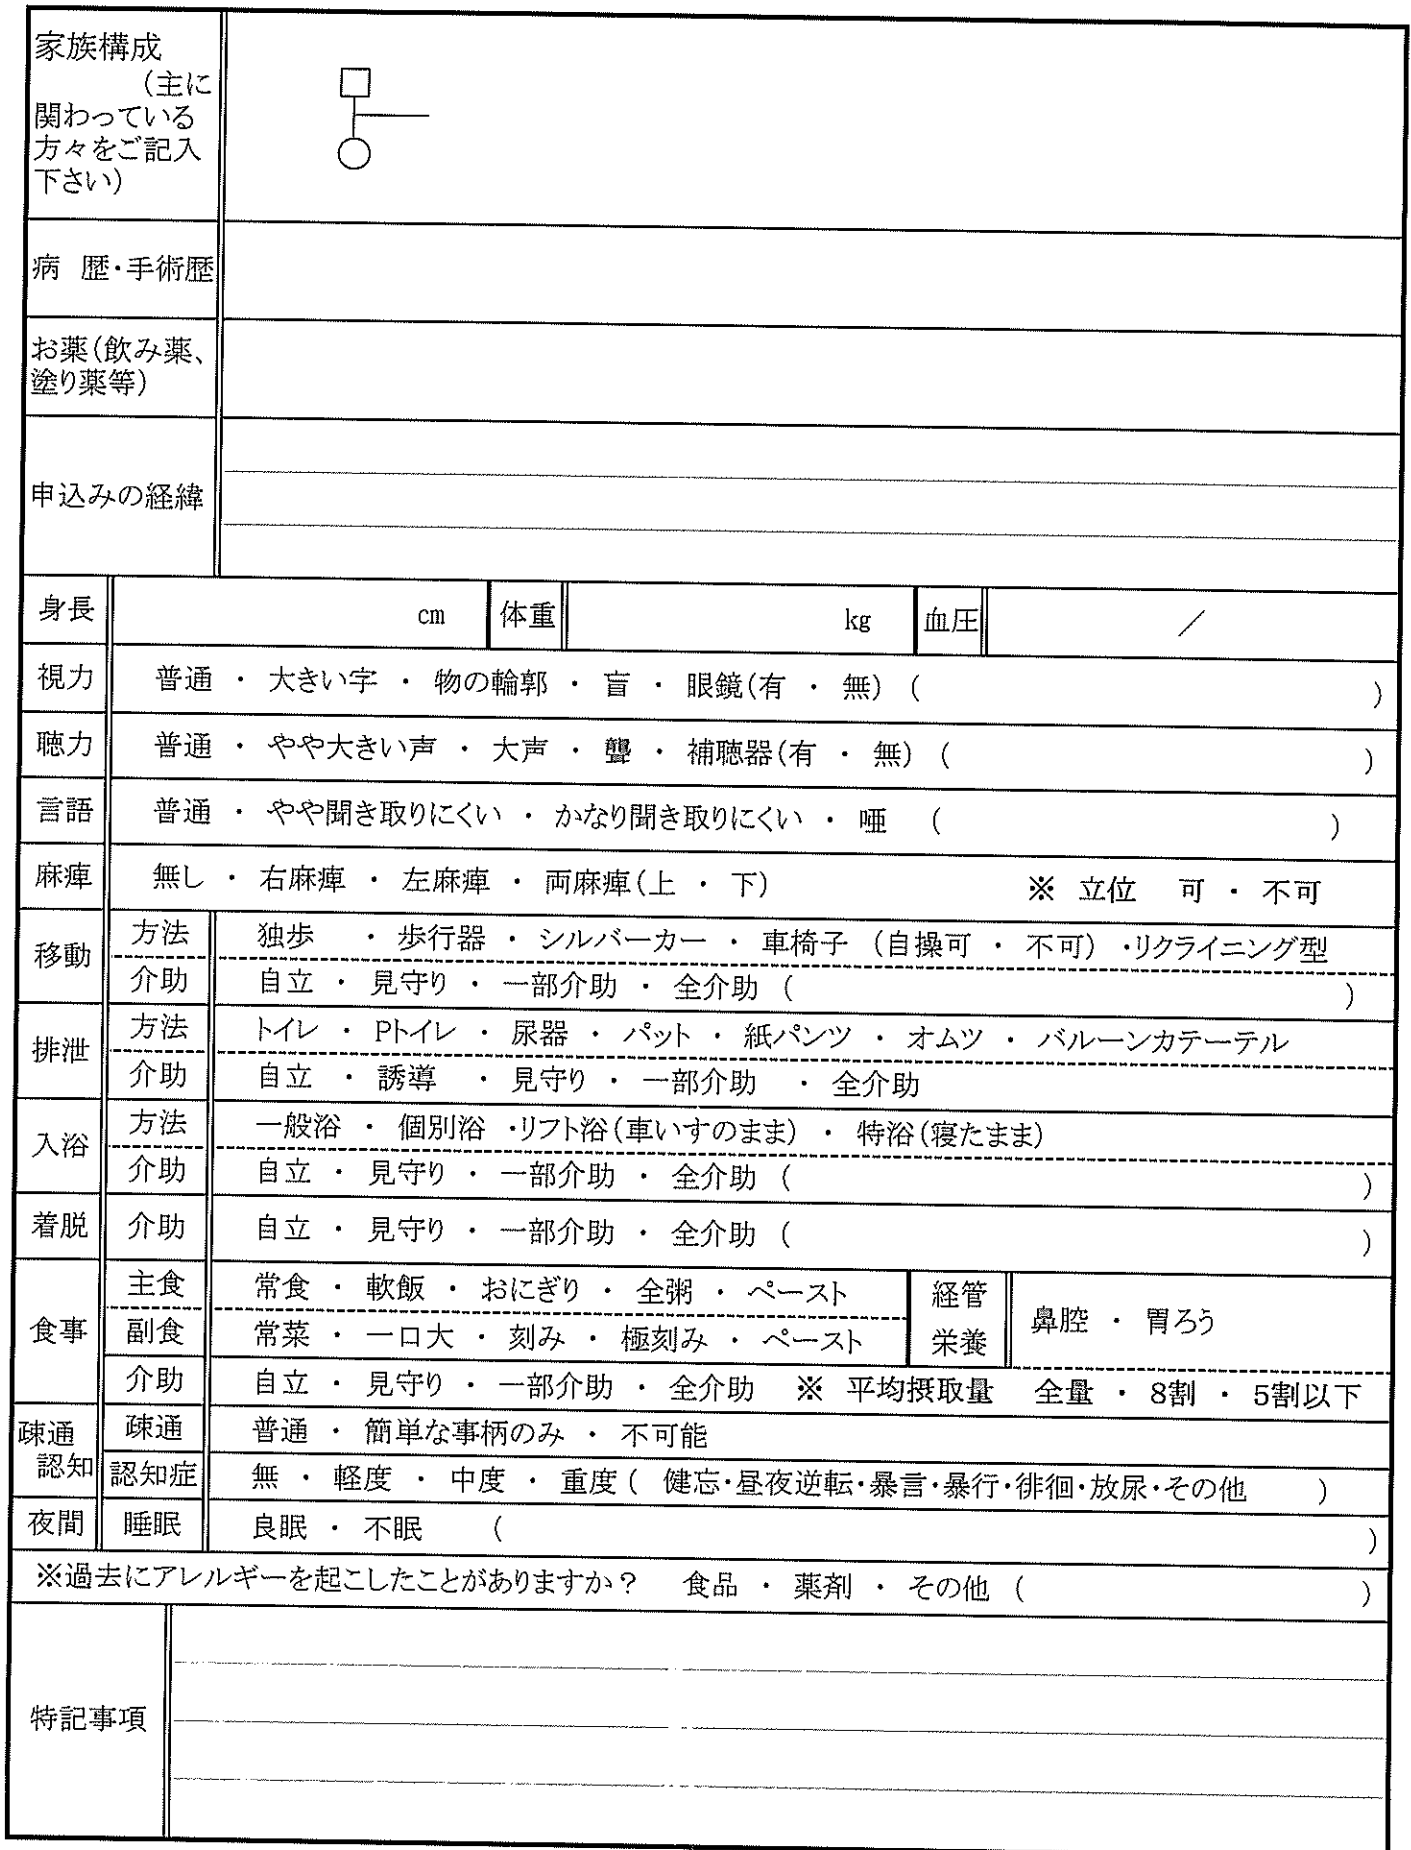 家族構成
(主に
関わっている
方々をご記入
下さい)
病 歴・手術歴
お薬(飲み薬、
塗り薬等)
申込みの経緯
身長 cm 体重 kg 血圧 /
視力 普通 ・ 大きい字 ・ 物の輪郭 ・ 盲 ・ 眼鏡(有 ・ 無) ( )
聴力 普通 ・ やや大きい声 ・ 大声 ・ 聾 ・ 補聴器(有 ・ 無) ( )
言語 普通 ・ やや聞き取りにくい ・ かなり聞き取りにくい ・ 唖 ( )
麻痺 無し ・ 右麻痺 ・ 左麻痺 ・ 両麻痺(上 ・ 下) ※ 立位 可 ・ 不可
移動 方法 独歩 ・ 歩行器 ・ シルバーカー ・ 車椅子 (自操可 ・ 不可) ・リクライニング型
介助 自立 ・ 見守り ・ 一部介助 ・ 全介助 ( )
排泄 方法 トイレ ・ Pトイレ ・ 尿器 ・ パット ・ 紙パンツ ・ オムツ ・ バルーンカテーテル
介助 自立 ・ 誘導 ・ 見守り ・ 一部介助 ・ 全介助
入浴 方法 一般浴 ・ 個別浴 ・リフト浴(車いすのまま) ・ 特浴(寝たまま)
介助 自立 ・ 見守り ・ 一部介助 ・ 全介助 ( )
着脱 介助 自立 ・ 見守り ・ 一部介助 ・ 全介助 ( )
食事 主食 常食 ・ 軟飯 ・ おにぎり ・ 全粥 ・ ペースト 経管 栄養 鼻腔 ・ 胃ろう
副食 常菜 ・ 一口大 ・ 刻み ・ 極刻み ・ ペースト
介助 自立 ・ 見守り ・ 一部介助 ・ 全介助 ※ 平均摂取量 全量 ・ 8割 ・ 5割以下
疎通 認知 疎通 普通 ・ 簡単な事柄のみ ・ 不可能
認知症 無 ・ 軽度 ・ 中度 ・ 重度( 健忘・昼夜逆転・暴言・暴行・徘徊・放尿・その他 )
夜間 睡眠 良眠 ・ 不眠 ( )
※過去にアレルギーを起こしたことがありますか? 食品 ・ 薬剤 ・ その他 ( )
特記事項